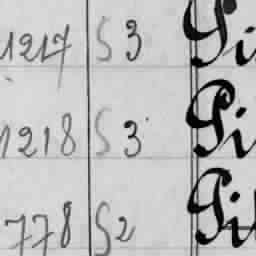 1217 S 3 Pi
1218 S 3 Pi
778 S2 Pi